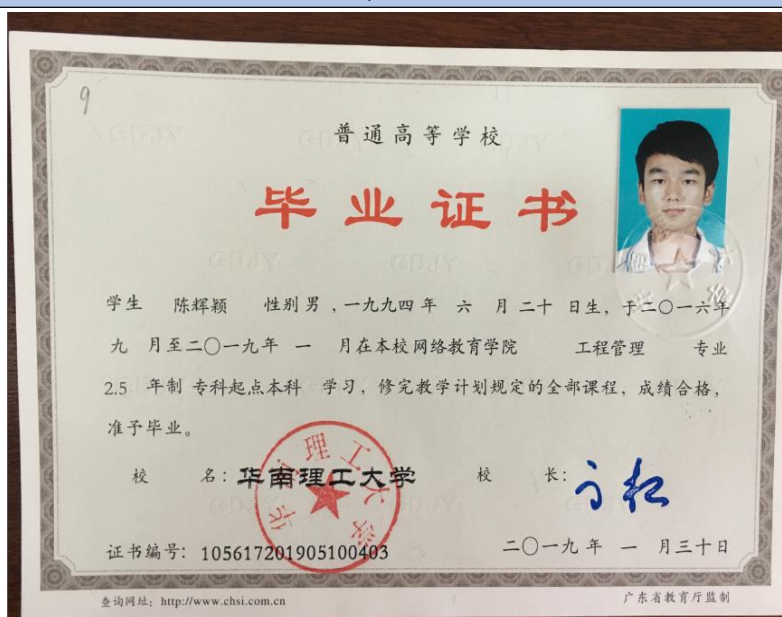 9
普通高等学校
毕业证书
学生 陈辉颖 性别男，一九九四年 六 月二十 日生，于二〇一六年
九 月至二〇一九年 一 月在本校网络教育学院 工程管理 专业
2.5 年制 专科起点本科 学习，修完教学计划规定的全部课程，成绩合格，
准予毕业。
校 名：华南理工大学 校 长：
华南理工大学
证书编号：105617201905100403 二〇一九年 一 月三十日
查询网址：http://www.chsi.com.cn 广东省教育厅监制